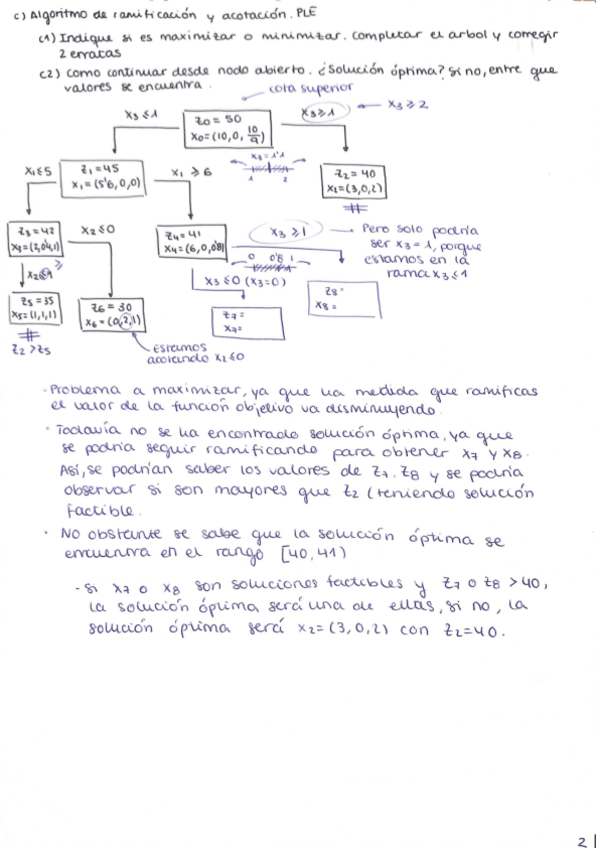 c) Algoritmo de ramificación y acotación. PLE
c1) Indique si es maximizar o minimizar. Completar el arbol y corregir
2 erratas
c2) como continuar desde nodo abierto. ¿Solución óptima? Si no, entre que
valores se encuentra.
cota superior
X3 ≤ 1
Z0 = 50
X0=(10,0, 10/9)
X3 ≥ 1
X3 ≥ 2
X1≤5
Z1=45
X1=(5'6,0,0)
X1 ≥ 6
X3=1'1
1 2
Z2=40
X2=(3,0,2)
Z3=42
X3=(2,0'4,1)
X2≤0
Z4=41
X4=(6,0,0'8)
X3 ≥ 1
Pero solo podría
ser X3=1, porque
estamos en la
rama X3≤1
0 0'8 1
X3≤0 (X3=0)
Z5=35
X5=(1,1,1)
Z6=30
X6=(0,2,1)
Z7=
X7=
Z8=
X8=
Z2>Z5
Estamos
acotando X2≤0
· Problema a maximizar, ya que ha medida que ramificas
el valor de la función objetivo va disminuyendo.
· Todavía no se ha encontrado solución óptima, ya que
se podría seguir ramificando para obtener X7 y X8.
Así, se podrían saber los valores de Z7, Z8 y se podría
observar si son mayores que Z2 (teniendo solución
factible.
· No obstante se sabe que la solución óptima se
encuentra en el rango [40,41)
- Si X7 o X8 son soluciones factibles y Z7 o Z8 >40,
la solución óptima será una de ellas, si no, la
solución óptima será X2=(3,0,2) con Z2=40.
2